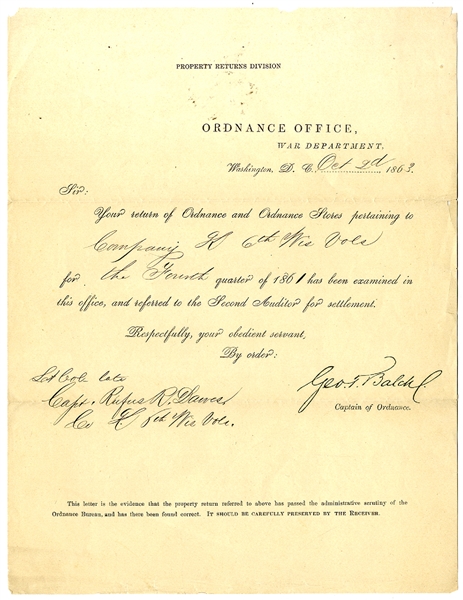 PROPERTY RETURNS DIVISION
ORDNANCE OFFICE,
WAR DEPARTMENT,
Washington, D. C. Oct 2d 1863.
Sir:
Your return of Ordnance and Ordnance Stores pertaining to
Company K 6th Wis Vols
for the Fourth quarter of 1861 has been examined in
this office, and referred to the Second Auditor for settlement.
Respectfully, your obedient servant,
By order:
Geo. T. Balch
Captain of Ordnance.
late
Capt. Rufus R. Dawes
Co K 6th Wis Vols.
This letter is the evidence that the property return referred to above has passed the administrative scrutiny of the
Ordnance Bureau, and has there been found correct. IT SHOULD BE CAREFULLY PRESERVED BY THE RECEIVER.